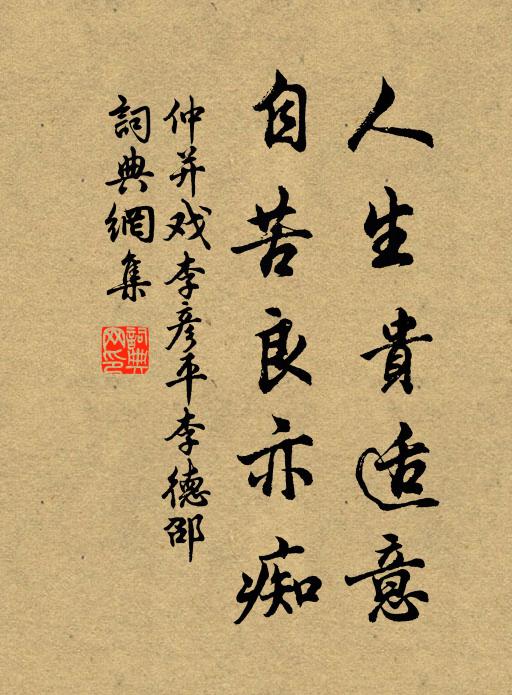 人生貴适意
自苦良亦痴
仲并戏李彦平李德邵
詞典網集
詞典网印